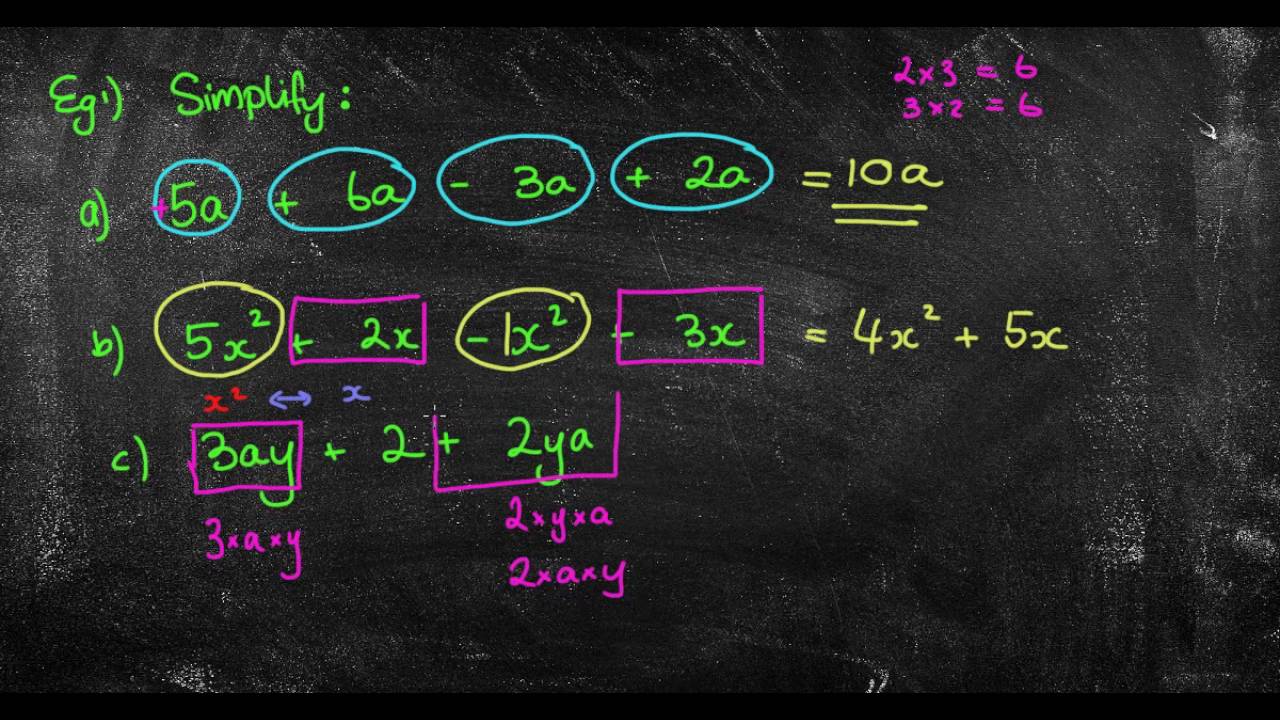 Eg1) Simplify:
2 x 3 = 6
3 x 2 = 6
a) +5a + 6a - 3a + 2a = 10a
b) 5x² + 2x - 1x² + 3x = 4x² + 5x
x² ↔ x
c) 3ay + 2 + 2ya
3 x a x y
2 x y x a
2 x a x y